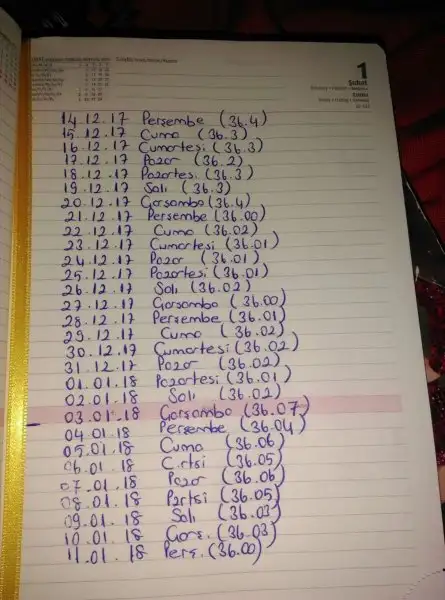 1
Şubat
14.12.17 Perşembe (36.4)
15.12.17 Cuma (36.3)
16.12.17 Cumartesi (36.3)
17.12.17 Pazar (36.2)
18.12.17 Pazartesi (36.3)
19.12.17 Salı (36.3)
20.12.17 Çarşamba (36.4)
21.12.17 Perşembe (36.00)
22.12.17 Cuma (36.02)
23.12.17 Cumartesi (36.01)
24.12.17 Pazar (36.01)
25.12.17 Pazartesi (36.01)
26.12.17 Salı (36.02)
27.12.17 Çarşamba (36.00)
28.12.17 Perşembe (36.01)
29.12.17 Cuma (36.02)
30.12.17 Cumartesi (36.02)
31.12.17 Pazar (36.02)
01.01.18 Pazartesi (36.01)
02.01.18 Salı (36.02)
03.01.18 Çarşamba (36.07)
04.01.18 Perşembe (36.04)
05.01.18 Cuma (36.06)
06.01.18 C.rtsi (36.05)
07.01.18 Pazar (36.06)
08.01.18 Pzrtsi (36.05)
09.01.18 Salı (36.03)
10.01.18 Çarş. (36.03)
11.01.18 Perş. (36.00)